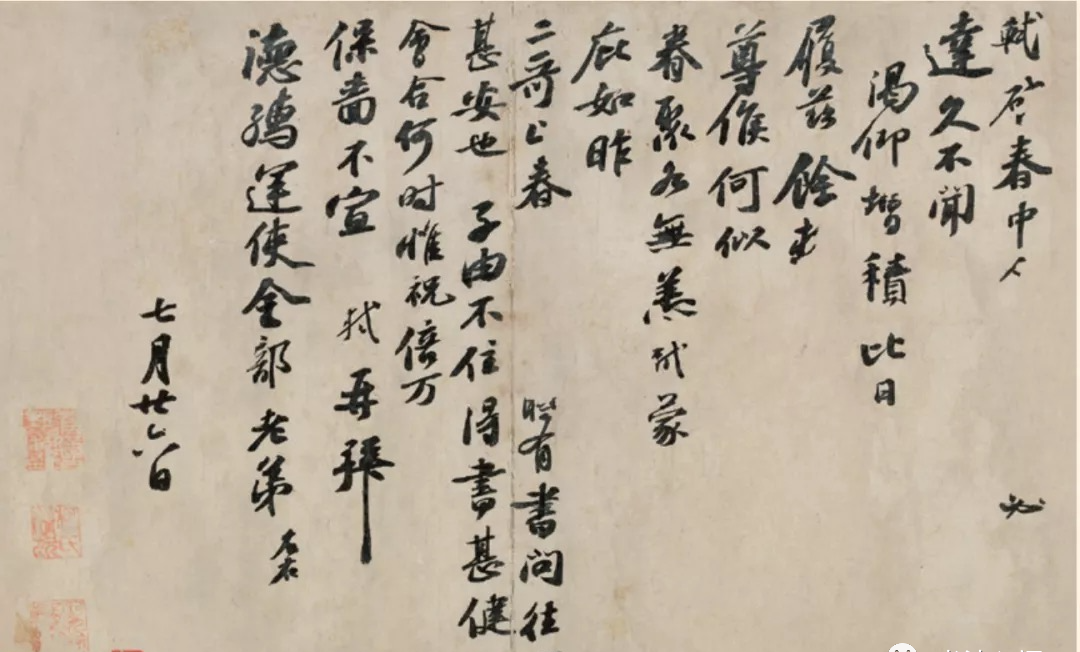 軾启春中必
達久不聞
渴仰增積比日
履兹餘
尊候何似
眷聚各無恙軾蒙
庇如昨
二哥上春時有書問往
甚安也子由不住得書甚健
會合何时惟祝倍万
保嗇不宣軾再拜
德孺運使金部老弟左右
七月廿六日